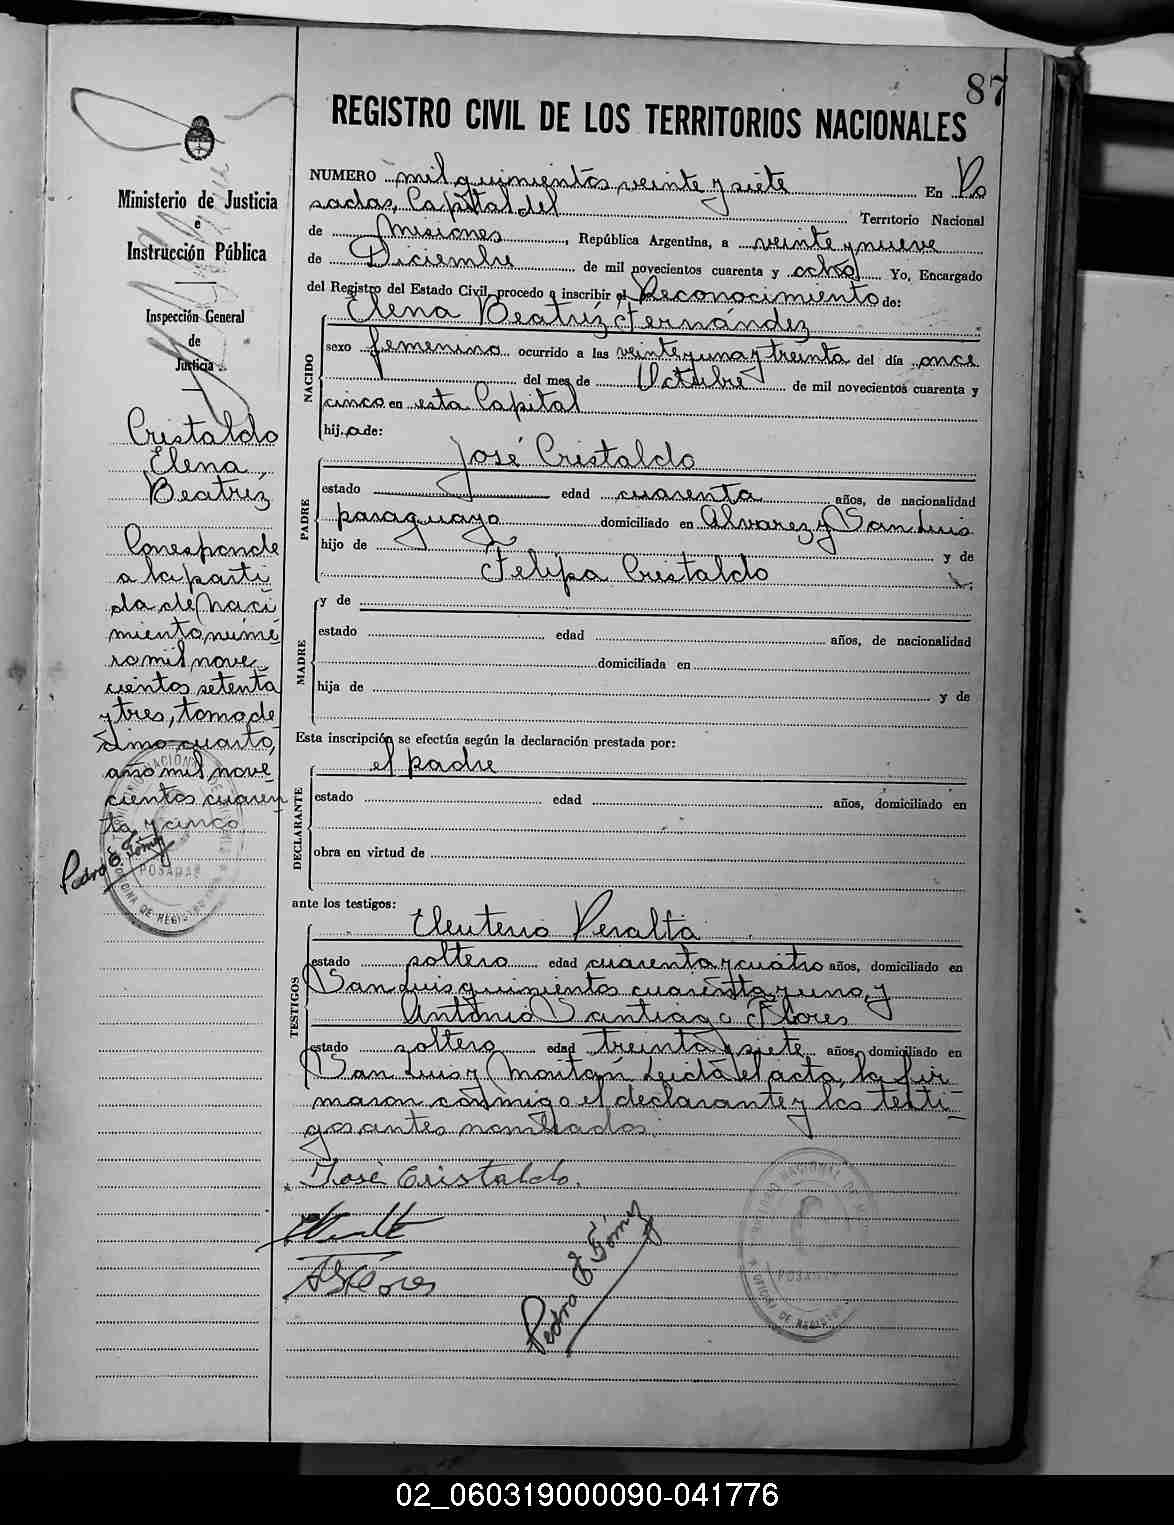 87
REGISTRO CIVIL DE LOS TERRITORIOS NACIONALES
Ministerio de Justicia
e
Instrucción Pública
Inspección General
de
Justicia
Cristaldo
Elena
Beatríz
Corresponde
a la parti
da de Naci
miento núme
ro mil nove
cientos setenta
y tres, tomo dé
cimo cuarto,
año mil nove
cientos cuaren
ta y cinco
Pedro E. Gómez
POSADAS
OFICINA DE REGISTRO
NUMERO mil quinientos veinte y siete En Po
sadas, Capital del Territorio Nacional
de Misiones, República Argentina, a veinte y nueve
de Diciembre de mil novecientos cuarenta y ocho Yo, Encargado
del Registro del Estado Civil, procedo a inscribir el Reconocimiento de:
NACIDO
Elena Beatríz Fernández
sexo femenino ocurrido a las veinte y una y treinta del día once
del mes de Octubre de mil novecientos cuarenta y
cinco en esta Capital
hij.a de:
PADRE
José Cristaldo
estado edad cuarenta años, de nacionalidad
paraguayo domiciliado en Alvarez y San Luis
hijo de y de
Felipa Cristaldo
MADRE
y de
estado edad años, de nacionalidad
domiciliada en
hija de y de
Esta inscripción se efectúa según la declaración prestada por:
DECLARANTE
el padre
estado edad años, domiciliado en
obra en virtud de
ante los testigos:
TESTIGOS
Eleuterio Peralta
estado soltero edad cuarenta y cuatro años, domiciliado en
San Luis quinientos cuarenta y uno, y
Antonio Santiago Flores
estado soltero edad treinta y siete años, domiciliado en
San Luis y Moritán Leída el acta, la fir
maron conmigo el declarante y los testi-
gos antes nombrados.
José Cristaldo.
ASFlores
Pedro E. Gómez
POSADAS
OFICINA DE REGISTRO
02_060319000090-041776